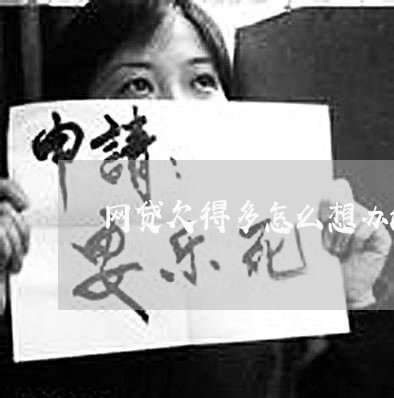 申請：
网贷欠得多怎么想办
安乐死